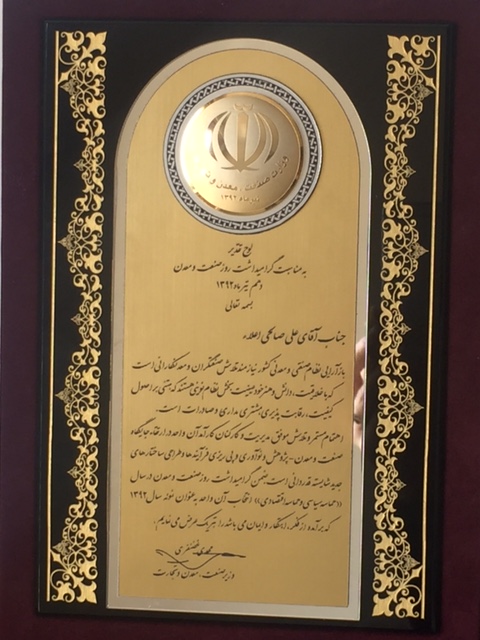 وزارت صنعت، معدن و تجارت
تیر ماه ۱۳۹۲
لوح تقدیر
به مناسبت گرامیداشت روز صنعت و معدن
دهم تیر ماه ۱۳۹۲
بسمه تعالی
جناب آقای علی صالحی اعلاء
بازآرایی نظام صنعتی و معدنی کشور نیازمند تلاش صنعتگران و معدنکارانی است
که با خلاقیت، دانش و هنر خود عینیت بخش نظام نوینی هستند که مبتنی بر اصول
کیفیت، رقابت پذیری، مشتری مداری و صادرات است.
اهتمام مستمر و تلاش موفق مدیریت و کارکنان کارآمد آن واحد در ارتقاء جایگاه
صنعت و معدن، پژوهش و نوآوری و پی ریزی فرآیندها و طراحی ساختارهای
جدید شایسته قدردانی است. ضمن گرامیداشت روز صنعت و معدن در سال
«حماسه سیاسی و حماسه اقتصادی» انتخاب آن واحد به عنوان نمونه سال ۱۳۹۲
که برآمده از فکر، ابتکار و ایمان می باشد را تبریک عرض می نمایم.
مهدی غضنفری
وزیر صنعت، معدن و تجارت